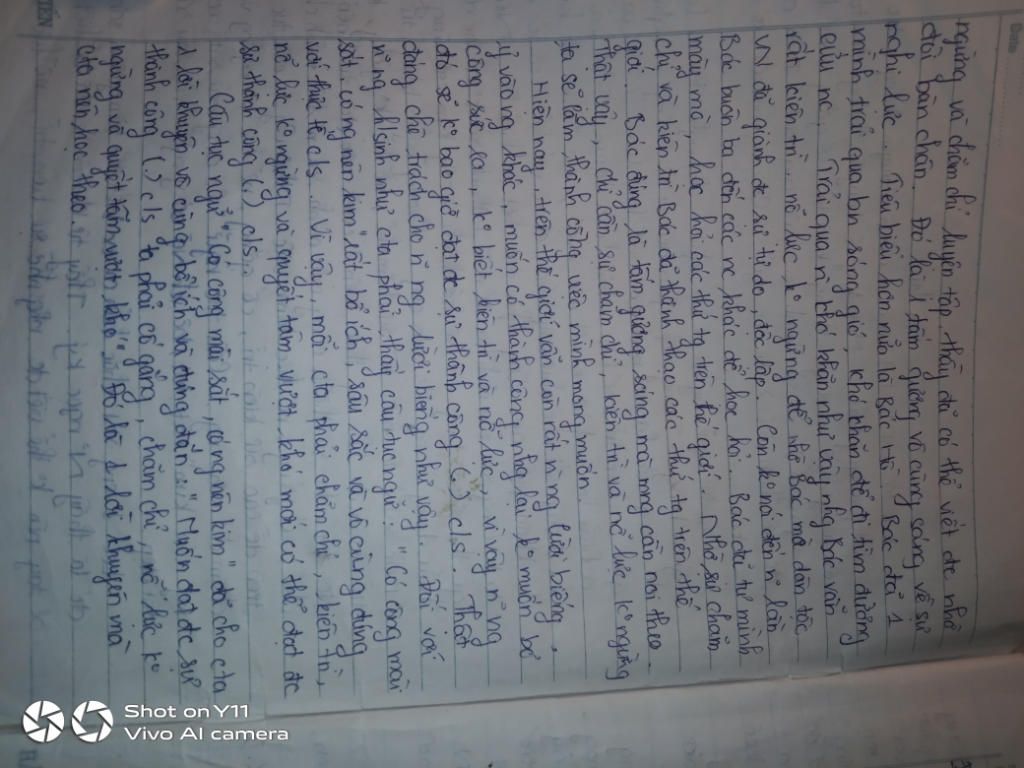 ngừng và chăm chỉ luyện tập, thầy đã có thể viết đc nhờ
đôi bàn chân. Đó là 1 tấm gương vô cùng sáng về sự
nghị lực. Tiêu biểu hơn nữa là Bác Hồ. Bác đã 1
mình trải qua bn sóng gió, khó khăn để đi tìm đường
cứu nc. Trải qua n~ khó khăn như vậy nhg Bác vẫn
rất kiên trì, nỗ lực ko ngừng để nhờ Bác mà dân tộc
VN đã giành đc sự tự do, độc lập. Còn ko nói đến n~ lần
Bác buôn ba đến các nc khác để học hỏi. Bác đã tự mình
mày mò, học hỏi các thứ tg trên tg giới. Nhờ sự chăm
chỉ và kiên trì Bác đã thành thạo các thứ tg trên thế
giới. Bác đúng là tấm gương sáng mà mng cần noi theo.
Thật vậy, chỉ cần sự chăm chỉ, kiên trì và nỗ lực ko ngừng
ta sẽ làm thành công việc mình mong muốn.
Hiện nay, trên thế giới vẫn còn rất n~ ng lười biếng,
ỷ vào ng khác, muốn có thành công nhg lại ko muốn bỏ
công sức ra, ko biết kiên trì và nỗ lực, vì vậy n~ ng
đó sẽ ko bao giờ đạt đc sự thành công (.) c/s. Thật
đáng chê trách cho n~ ng lười biếng như vậy. Đối với
n~ ng h/sinh như cta, phải thấy câu tục ngữ: "Có công mài
sắt, có ngày nên kim" rất bổ ích, sâu sắc và vô cùng đúng
với thực tế c/s. Vì vậy, mỗi cta phải chăm chỉ, kiên trì,
nỗ lực ko ngừng và quyết tâm vượt khó mới có thể đạt đc
sự thành công (.) c/s.
Câu tục ngữ "Có công mài sắt, có ngày nên kim" đã cho cta
1 lời khuyên vô cùng bổ ích và đúng đắn: "Muốn đạt đc sự
thành công (.) c/s ta phải cố gắng, chăm chỉ, nỗ lực ko
ngừng và quyết tâm vượt khó". Đó là 1 lời khuyên mà
cta nên học theo.
Shot on Y11
Vivo AI camera